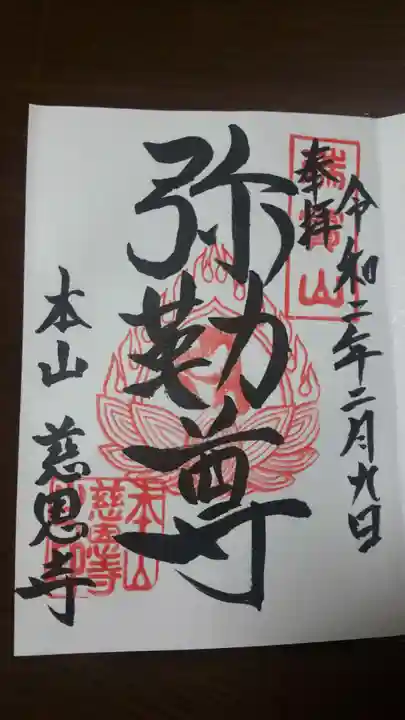 令和二年二月九日
奉拝
瑞寶山
弥勒尊
本山 慈恩寺
本山
慈恩寺